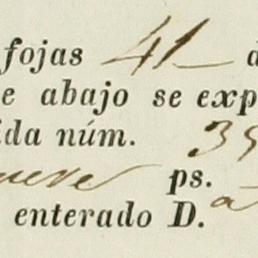 fojas 41 d
e abajo se exp
ida núm. 35
nueve ps.
enterado D. a